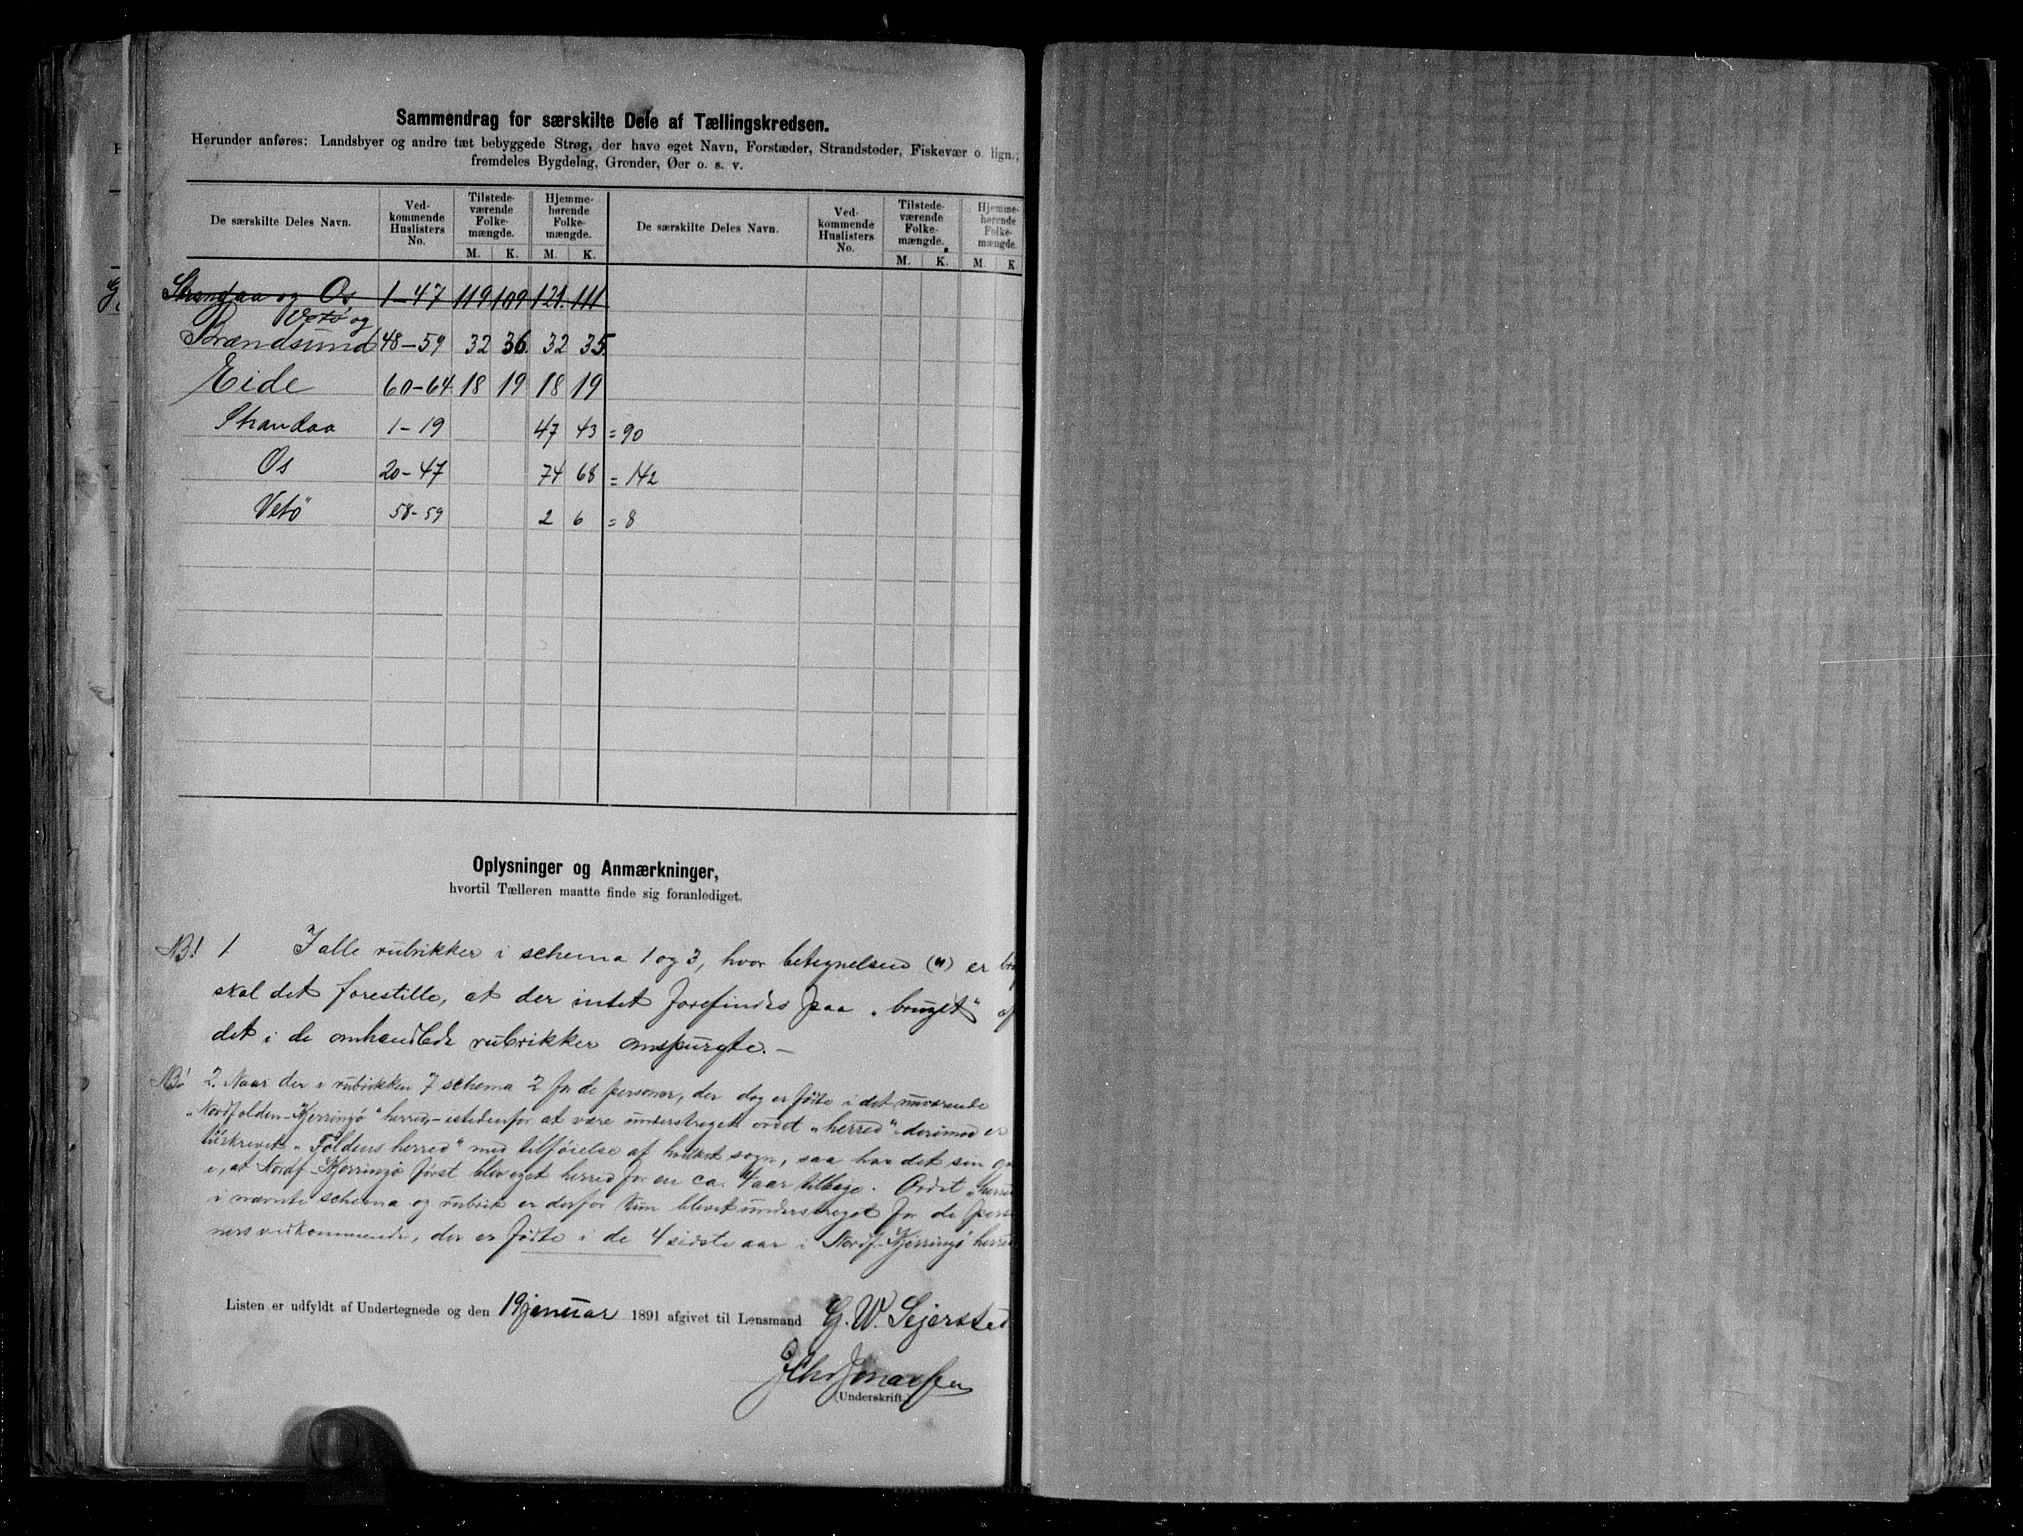 Sammendrag for særskilte Dele af Tællingskredsen.
Herunder anføres: Landsbyer og andre tæt bebyggede Strøg, der have eget Navn, Forstæder, Strandsteder, Fiskevær o. lign.,
fremdeles Bygdelag, Grender, Øer o. s. v.
De særskilte Deles Navn. Ved-kommende Huslisters No. Tilstede-værende Folke-mængde. Hjemme-hørende Folke-mængde. De særskilte Deles Navn. Ved-kommende Huslisters No. Tilstede-værende Folke-mængde. Hjemme-hørende Folke-mængde.
M. K. M. K. M. K. M. K.
Strandaa og Os 1-47 119 109 121 111
Vetö og
Brændsund 48-59 32 36 32 35
Eide 60-64 18 19 18 19
Strandaa 1-19 47 43 = 90
Os 20-47 74 68 = 142
Vetö 58-59 2 6 = 8
Oplysninger og Anmærkninger,
hvortil Tælleren maatte finde sig foranlediget.
NB! 1 I alle rubrikker i schema 1 og 3, hvor betegnelsen (") er
skal det forestille, at der intet forefindes paa "bruget" af
det i de omhandlede rubrikker omspurgte. -
NB! 2. Naar der i rubrikken 7 schema 2 for de personer, der dog er fødte i det nuværende
"Nordfolden-Kjerringø" herred, - istedenfor at være understreget ordet "herred" derimod er
tilskrevet "Foldens herred" med tilføielse af hvilket sogn, saa har det sin
i, at Nordf-Kjerringø først blev eget herred for en ca. 4 aar tilbage. Ordet "herred
i nævnte schema og rubrik er derfor kun blevet understreget for de perso
ners vedkommende, der er fødte i de 4 sidste aar i Nordf-Kjerringø herred
Listen er udfyldt af Undertegnede og den 19 januar 1891 afgivet til Lensmand G. W. Sejersted
Jonassen
(Underskrift.)